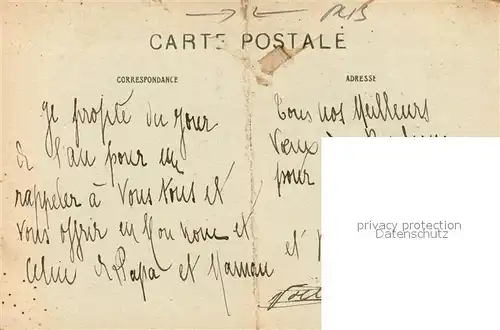 CARTE POSTALE
CORRESPONDANCE
Je profite du jour
de l'an pour me
rappeler à vous tous et
vous offrir en mon nom et
celui de Papa et Maman
ADRESSE
Tous nos Meilleurs
Vœux de
pour
et
privacy protection
Datenschutz